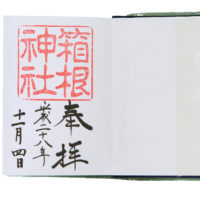 奉拝
箱根
神社
平成二十八年
十一月四日